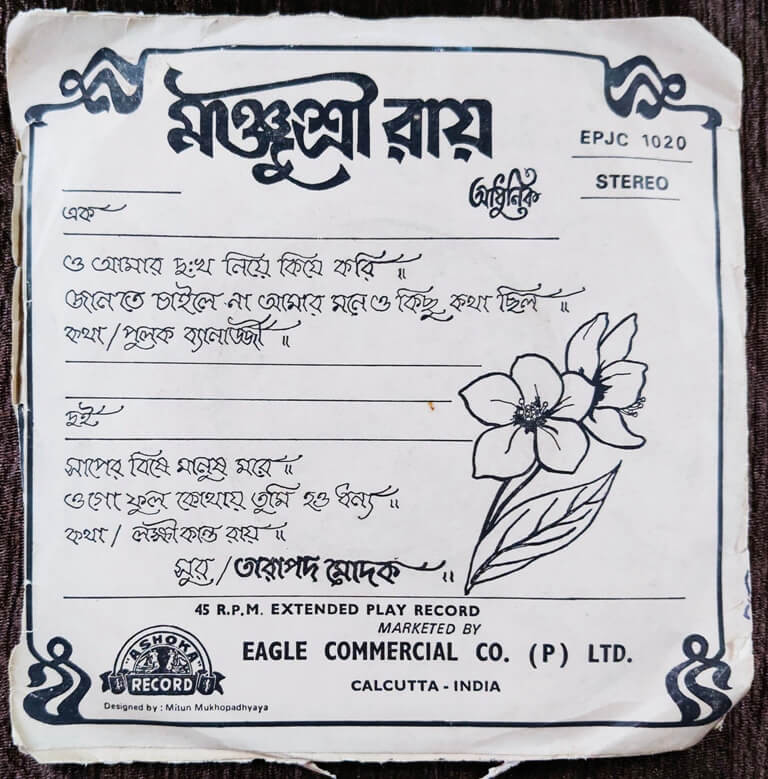 মঞ্জুশ্রী রায়
আধুনিক
EPJC 1020
STEREO
এক
ও আমার দুঃখ নিয়ে কিযে করি ॥
জানতে চাইলে না আমার মনে ও কিছু কথা ছিল ॥
কথা / পুলক ব্যানার্জ্জী ॥
দুই
সাপের বিষে মানুষ মরে ॥
ওগো ফুল কোথায় তুমি হও ধন্য ॥
কথা / লক্ষীকান্ত রায় ॥
সুর / তারাপদ মোদক ॥
45 R.P.M. EXTENDED PLAY RECORD
MARKETED BY
EAGLE COMMERCIAL CO. (P) LTD.
CALCUTTA - INDIA
"ASHOKA"
RECORD
Designed by : Mitun Mukhopadhyaya